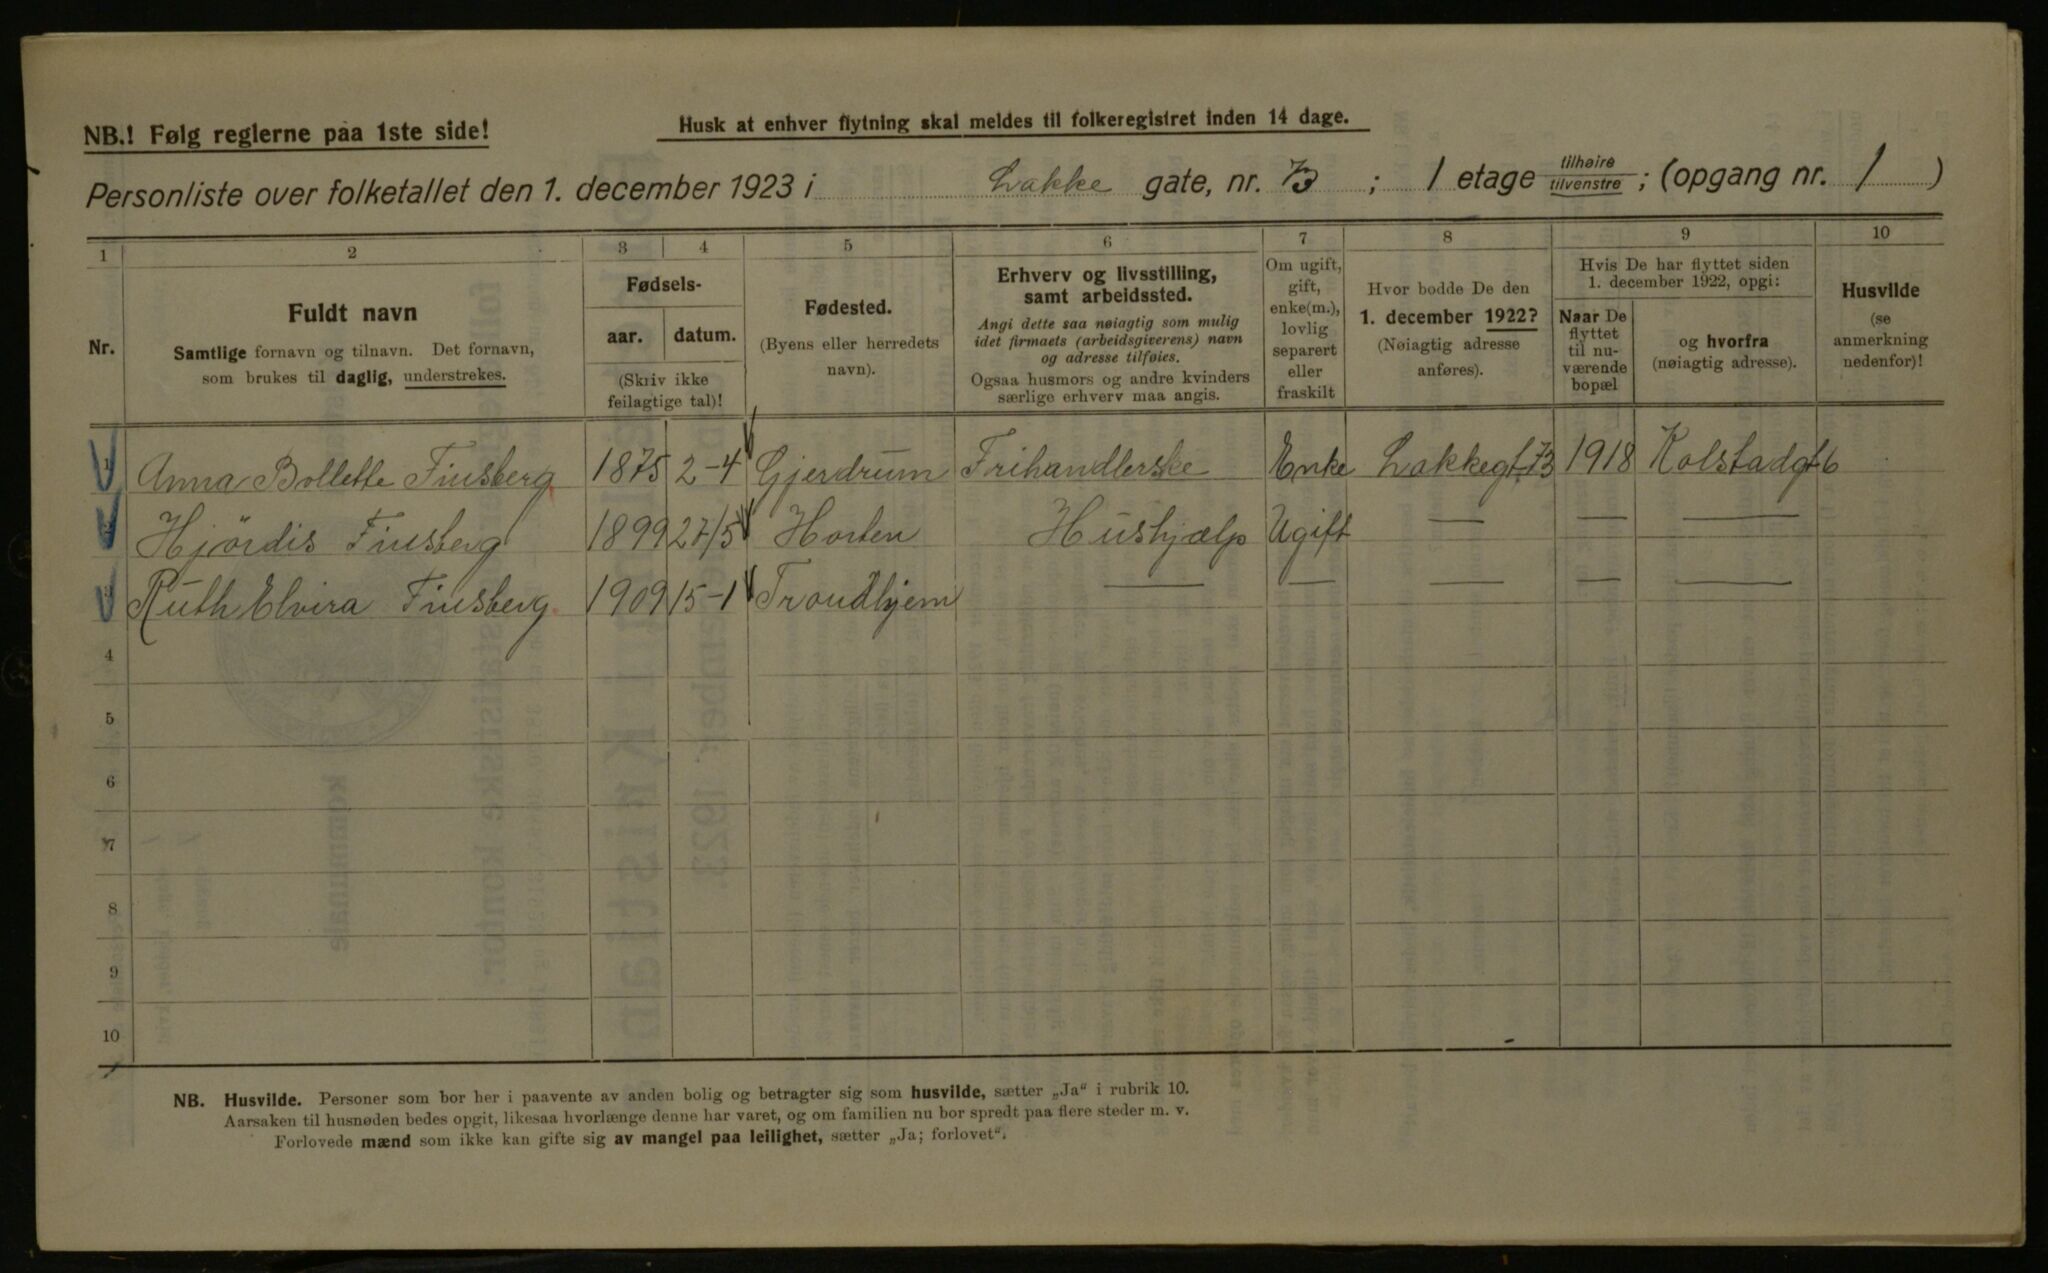 NB.! Følg reglerne paa 1ste side!
Husk at enhver flytning skal meldes til folkeregistret inden 14 dage.
Personliste over folketallet den 1. december 1923 i Lakke gate, nr. 73 ; 1 etage tilhøire tilvenstre ; (opgang nr. 1 )
1 2 3 4 5 6 7 8 9 10
Nr.
Fuldt navn
Samtlige fornavn og tilnavn. Det fornavn,
som brukes til daglig, understrekes.
Fødsels-
aar. datum.
(Skriv ikke
feilagtige tal)!
Fødested.
(Byens eller herredets
navn).
Erhverv og livsstilling,
samt arbeidssted.
Angi dette saa nøiagtig som mulig
idet firmaets (arbeidsgiverens) navn
og adresse tilføies.
Ogsaa husmors og andre kvinders
særlige erhverv maa angis.
Om ugift,
gift,
enke(m.),
lovlig
separert
eller
fraskilt
Hvor bodde De den
1. december 1922?
(Nøiagtig adresse
anføres).
Hvis De har flyttet siden
1. december 1922, opgi:
Naar De
flyttet
til nu-
værende
bopæl
og hvorfra
(nøiagtig adresse).
Husvilde
(se
anmerkning
nedenfor)!
1 Anna Bollette Finsberg 1875 2-4 Gjerdrum Frihandlerske Enke Lakkegt. 73 1918 Kolstadgt 6
2 Hjördis Finsberg 1899 27/5 Horten Hushjælp Ugift — — —
3 Ruth Elvira Finsberg 1909 15-1 Trondhjem — — — — —
4
5
6
7
8
9
10
NB. Husvilde. Personer som bor her i paavente av anden bolig og betragter sig som husvilde, sætter „Ja“ i rubrik 10.
Aarsaken til husnøden bedes opgit, likesaa hvorlænge denne har varet, og om familien nu bor spredt paa flere steder m. v.
Forlovede mænd som ikke kan gifte sig av mangel paa leilighet, sætter „Ja; forlovet“.